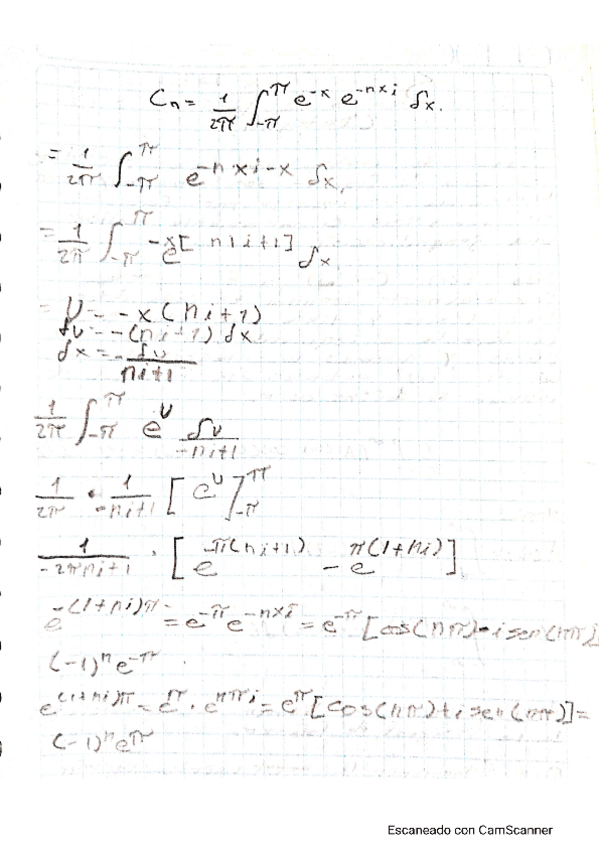 Cn = 1/2π ∫_-π^π e^-x e^-nxi dx.
= 1/2π ∫_-π^π e^-nxi-x dx.
= 1/2π ∫_-π^π e^-x[n1i+1] dx
= U = -x(ni+1)
du = -(ni+1) dx
dx = - du/ni+1
1/2π ∫_-π^π e^U du/-ni+1
1/2π · 1/-ni+1 [e^U]_-π^π
1/-2πni+1 · [e^-π(ni+1) - e^π(1+ni)]
e^-(1+ni)π = e^-π e^-nxi = e^-π [cos(nπ)-i sen(nπ)]
(-1)^n e^-π.
e^(1+ni)π = e^π · e^nπi = e^π [cos(nπ)+i sen(nπ)] =
(-1)^n e^π
Escaneado con CamScanner